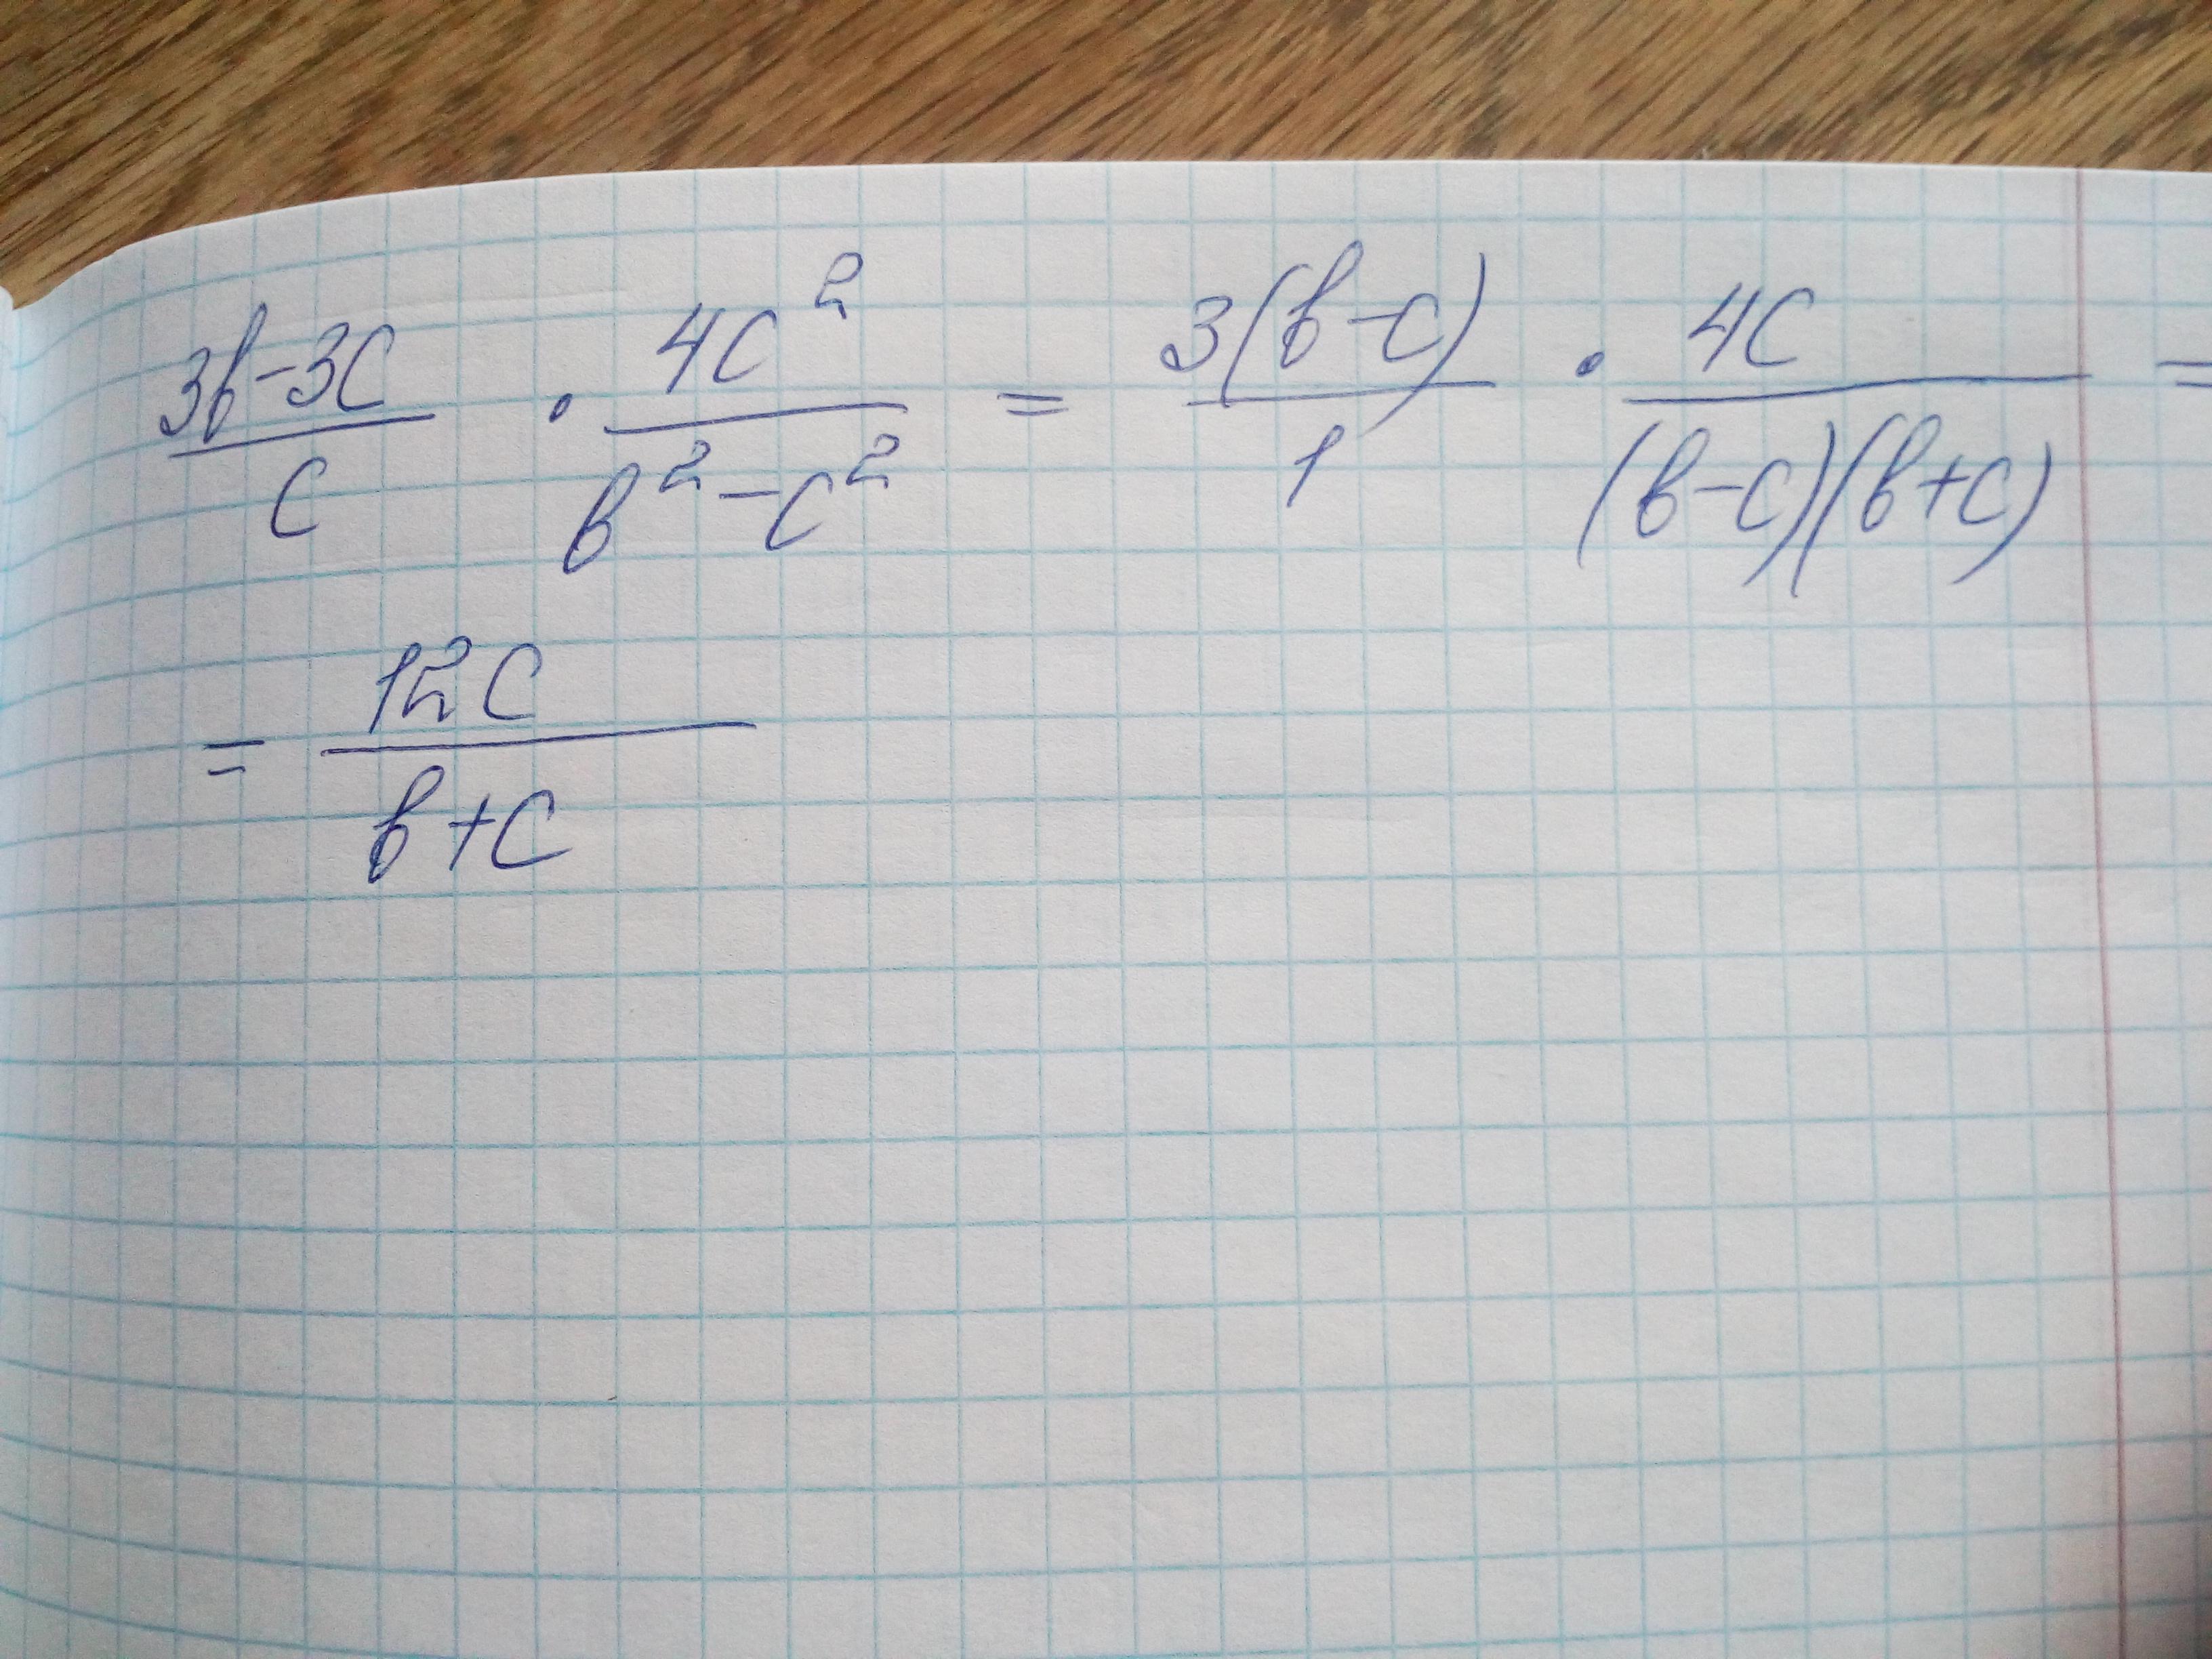 (3b-3c)/c · 4c²/(b²-c²) = 3(b-c)/1 · 4c/((b-c)(b+c)) =
= 12c/(b+c)